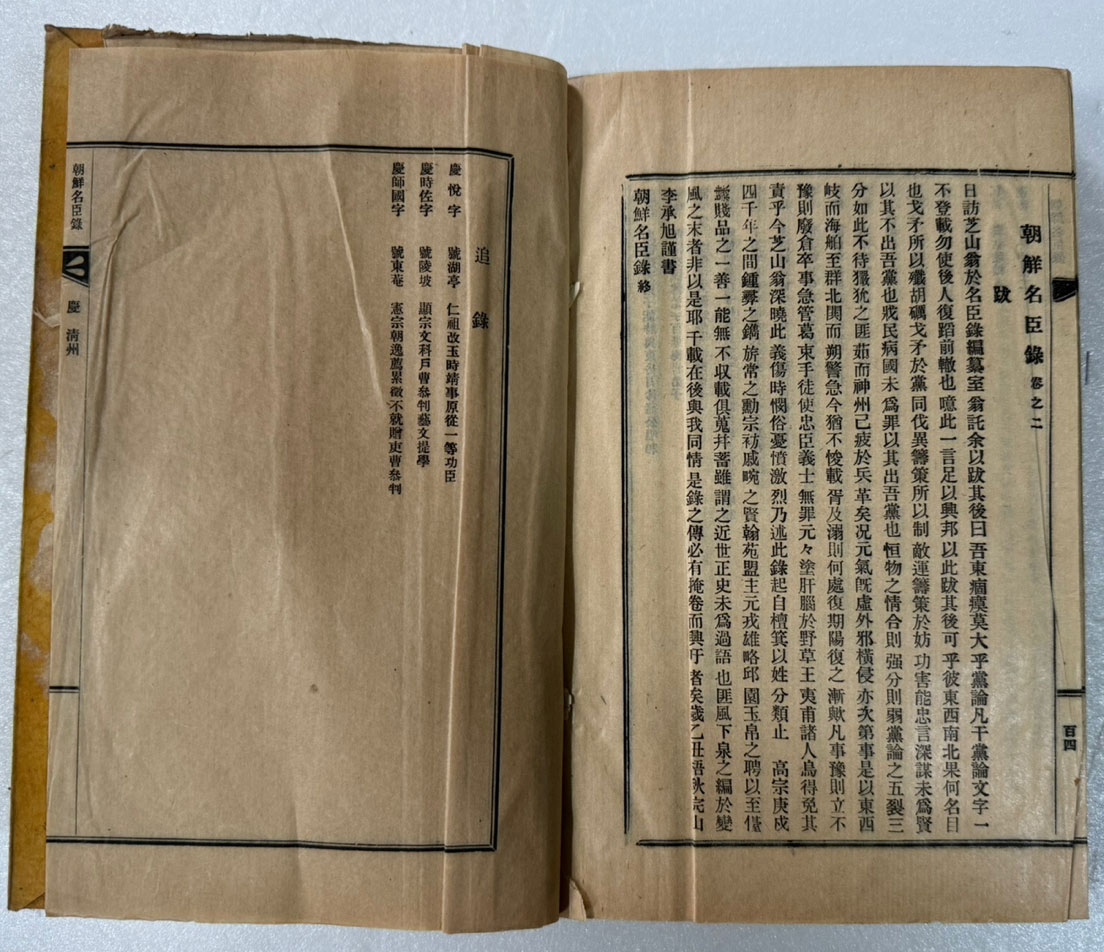 朝鮮名臣錄 卷之二
跋
日訪芝山翁於名臣錄編纂室翁託余以跋其後曰 吾東痼瘼莫大乎黨論凡干黨論文字一
不登載勿使後人復蹈前轍也噫此一言足以興邦以此跋其後可乎彼東西南北果何名目
也戈矛所以殲胡礪戈矛於黨同伐異籌策所以制敵運籌策於妨功害能忠言深謀未爲賢
以其不出吾黨也戕民病國未爲罪以其出吾黨也恒物之情合則强分則弱黨論之五裂三
分如此不待玁狁之匪茹而神州己疲於兵革矣况元氣旣虛外邪橫侵亦次第事是以東西
岐而海舶至群北閧而朔警急今猶不悛載胥及溺則何處復期陽復之漸歟凡事豫則立不
豫則廢倉卒事急管葛束手徒使忠臣義士無罪元々塗肝腦於野草王夷甫諸人烏得免其
責乎今芝山翁深曉此義傷時憫俗憂憤激烈乃述此錄起自檀箕以姓分類止 高宗庚戍
四千年之間鍾彛之鐫旂常之勳宗祊戚畹之賢翰苑盟主元戎雄略邱園玉帛之聘以至僿
賤品之一善一能無不収載俱蒐幷蓄雖謂之近世正史未爲過語也匪風下泉之編於變
風之末者非以是耶千載在後與我同情是錄之傳必有掩卷而興吁者矣歲乙丑梧秋完山
李承旭謹書
朝鮮名臣錄 終
百四
追錄
慶悅字 號湖亭 仁祖改玉時靖事原從一等功臣
慶時佐字 號陵坡 顯宗文科戶曹參判藝文提學
慶師國字 號東菴 憲宗朝逸薦累徵不就贈吏曹參判
朝鮮名臣錄
慶 淸州